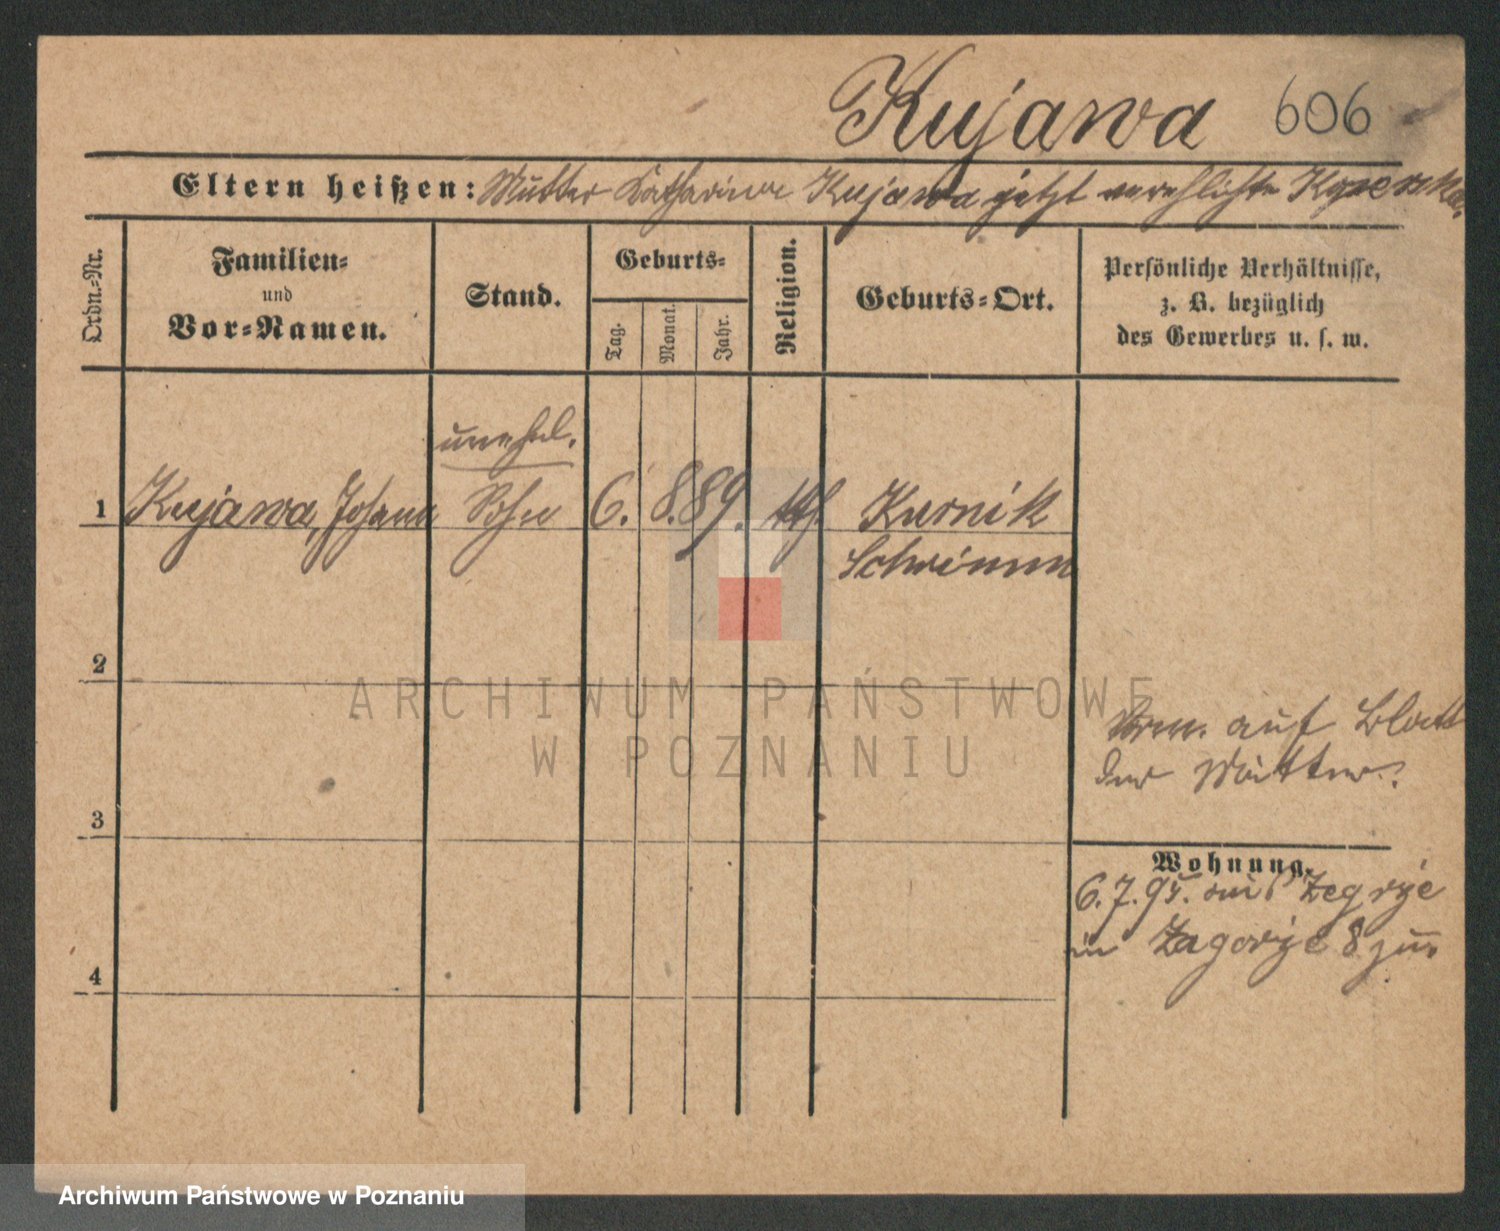 Kujawa 606
Eltern heißen: Mutter Katharina Kujawa jetzt verehlichte
Ordn.-Nr.
Familien-
und
Vor-Namen.
Stand.
Geburts-
Tag.
Monat.
Jahr.
Religion.
Geburts-Ort.
Persönliche Verhältnisse,
z. B. bezüglich
des Gewerbes u. s. w.
unehel.
1 Kujawa, Johann Sohn 6. 8. 89. kth. Kurnik
Schrimm
2
ARCHIWUM PAŃSTWOWE
W POZNANIU
auf Blatt
der Mutter.
3
Wohnung.
6. 7. 95. aus Zegrze
4
in Zagorze 8
Archiwum Państwowe w Poznaniu